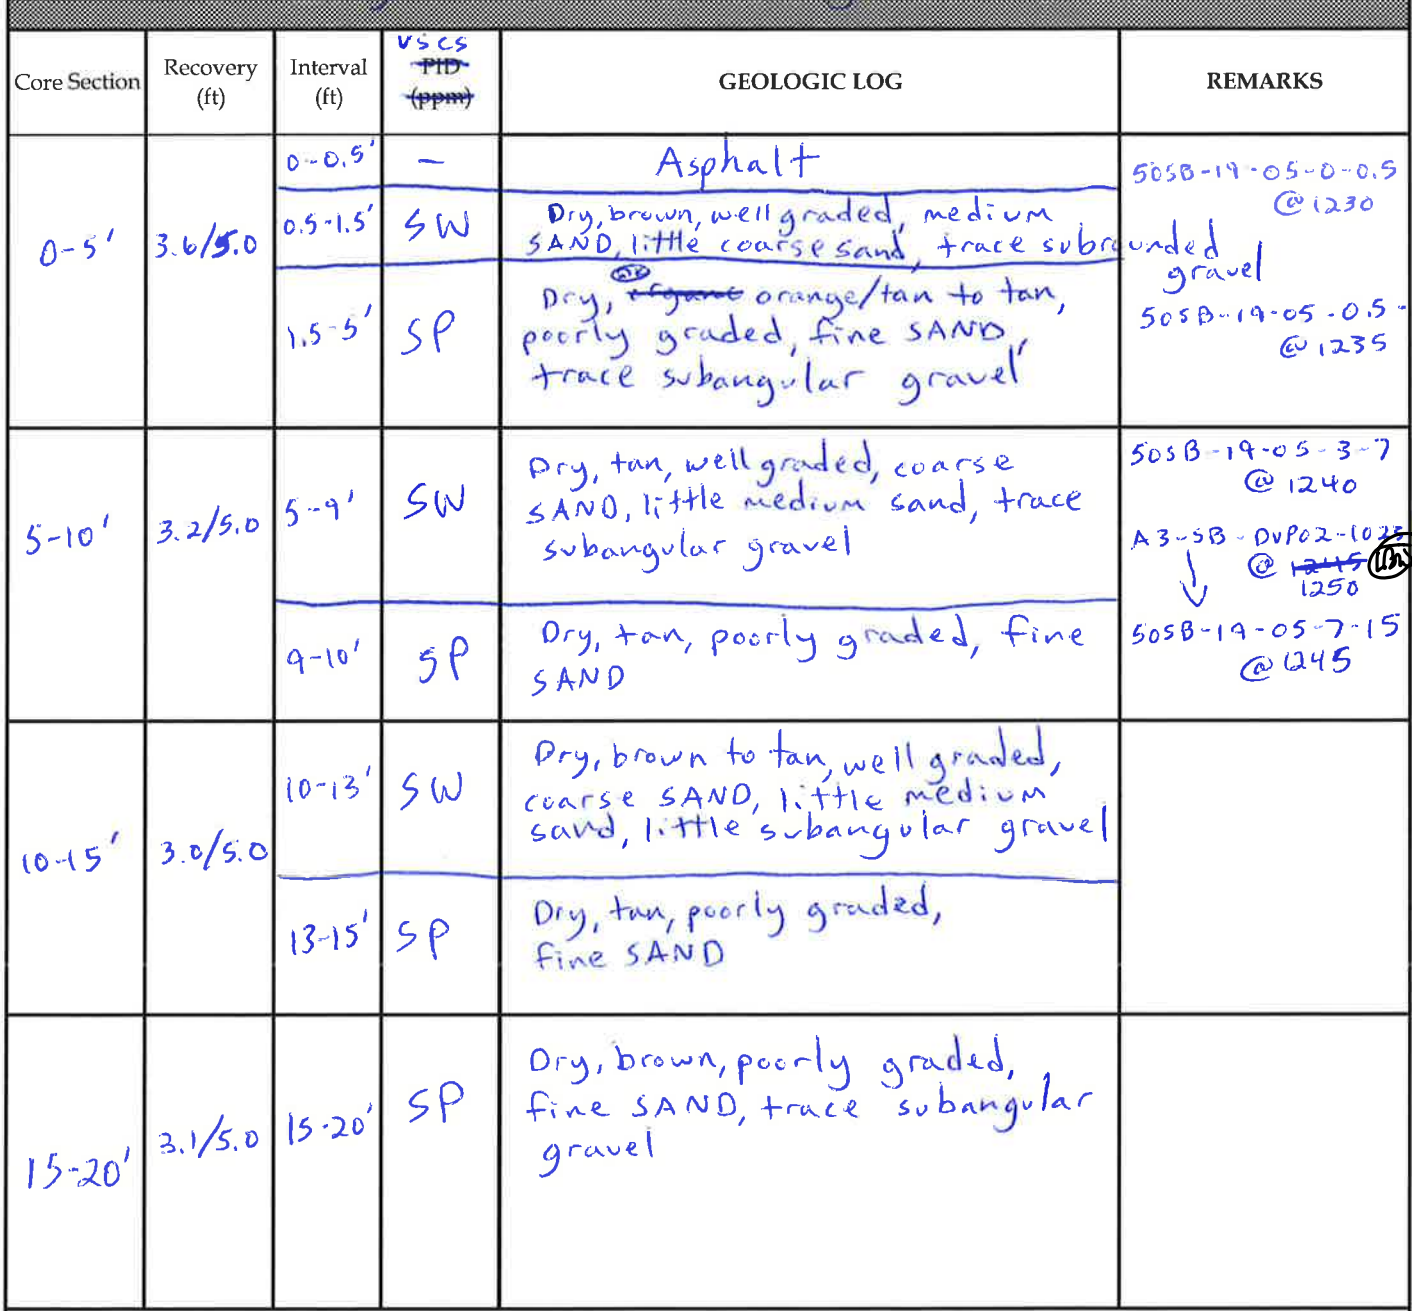 USCS
Core Section
Recovery (ft)
Interval (ft)
PID (ppm)
GEOLOGIC LOG
REMARKS
0-5'
3.6/5.0
0-0.5'
-
Asphalt
0.5-1.5'
SW
Dry, brown, well graded, medium
SAND, little coarse sand, trace subrounded
gravel
1.5-5'
SP
Dry, orange/tan to tan,
poorly graded, fine SAND,
trace subangular gravel
50SB-19-05-0-0.5
@ 1230
50SB-19-05-0.5-
@ 1235
5-10'
3.2/5.0
5-9'
SW
Dry, tan, well graded, coarse
SAND, little medium sand, trace
subangular gravel
9-10'
SP
Dry, tan, poorly graded, fine
SAND
50SB-19-05-3-7
@ 1240
A3-SB-DUP02-1023
@ 1245
1250
50SB-19-05-7-15
@ 1245
10-15'
3.0/5.0
10-13'
SW
Dry, brown to tan, well graded,
coarse SAND, little medium
sand, little subangular gravel
13-15'
SP
Dry, tan, poorly graded,
fine SAND
15-20'
3.1/5.0
15-20'
SP
Dry, brown, poorly graded,
fine SAND, trace subangular
gravel